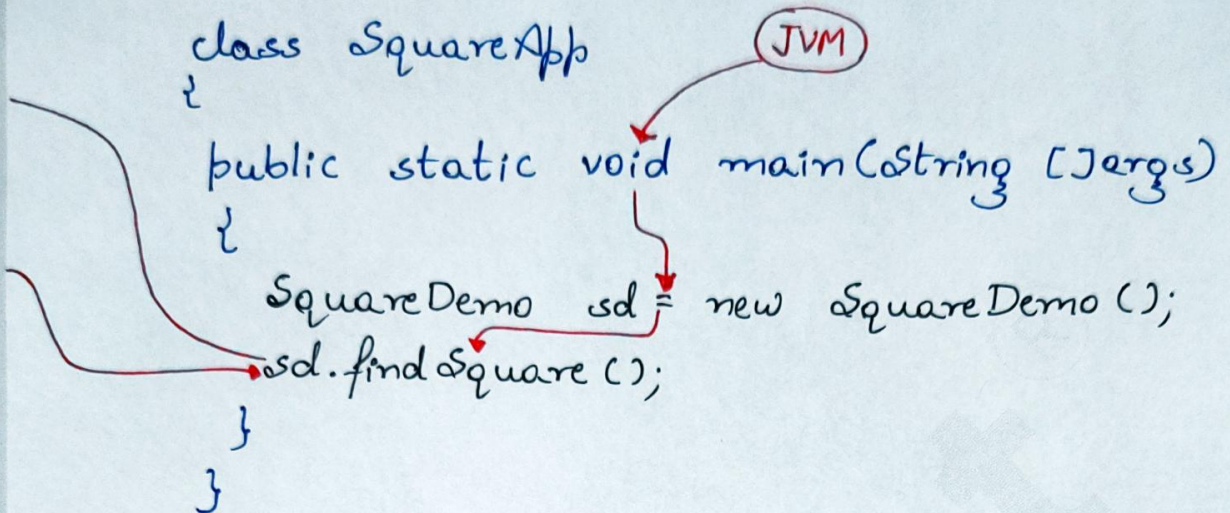 class SquareApp
JVM
{
public static void main(String []args)
{
SquareDemo sd = new SquareDemo();
sd.findSquare();
}
}